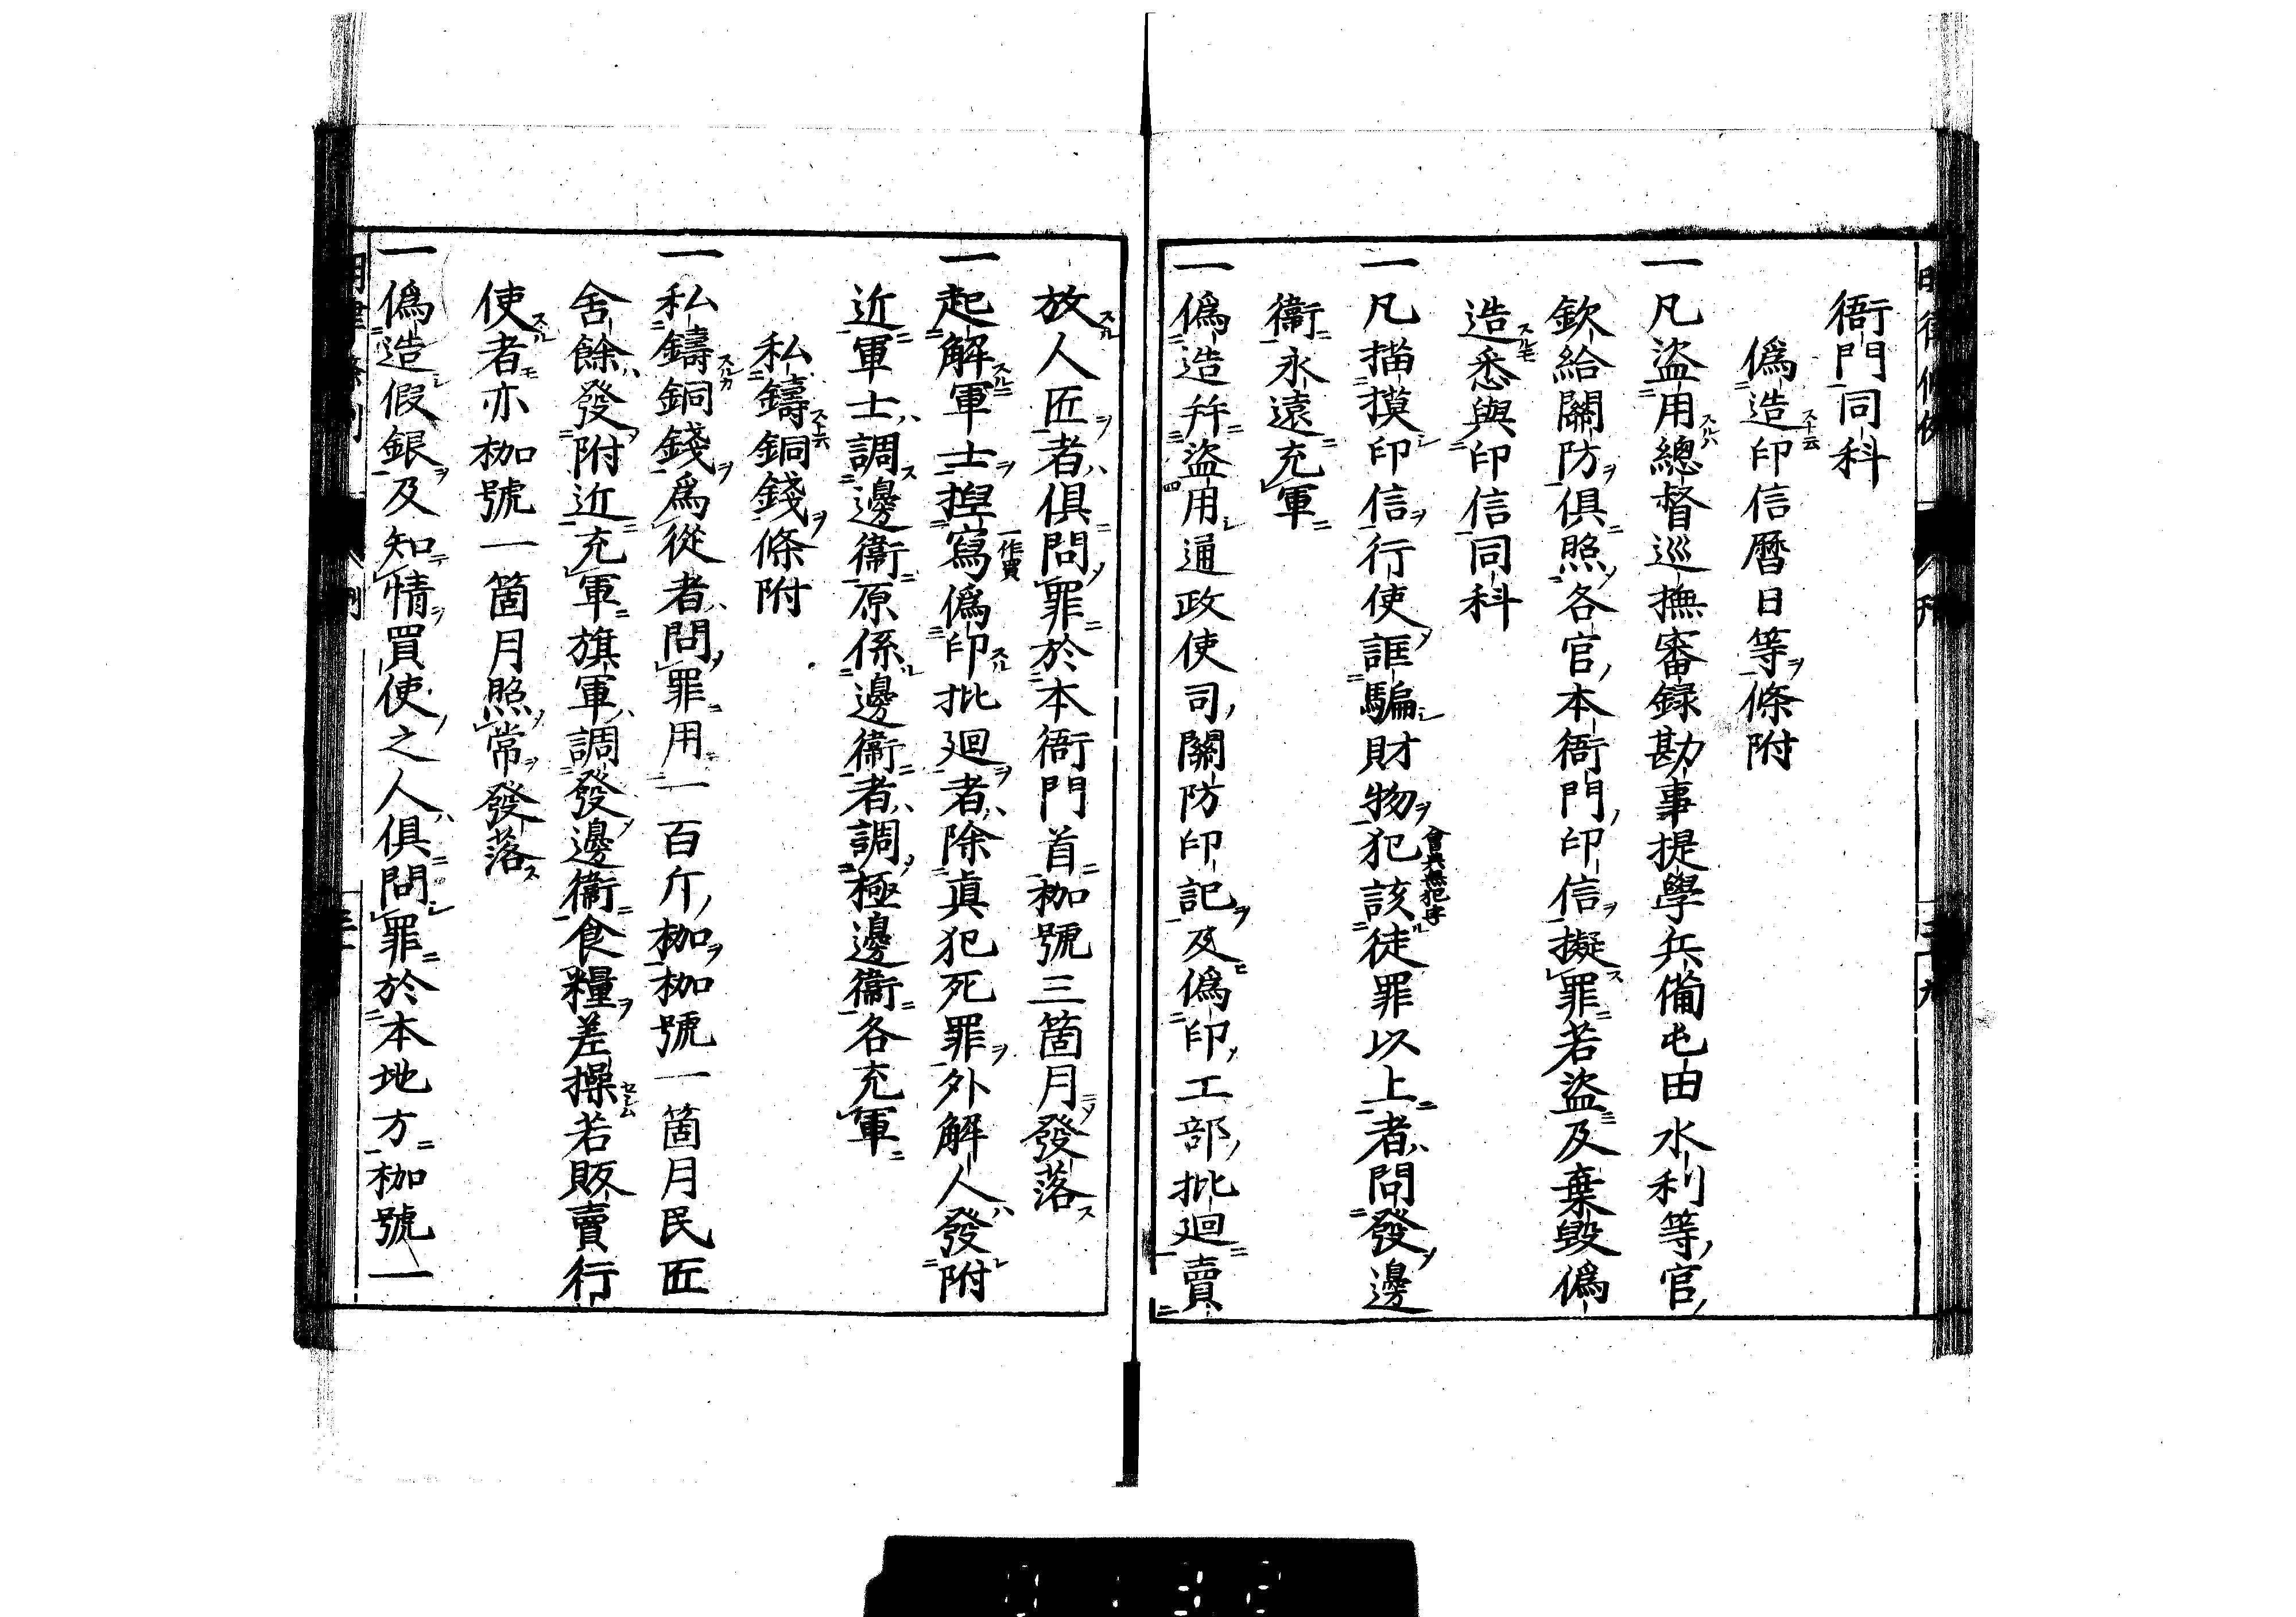 衙門同科
僞造印信曆日等條附
一凡盜用總督巡撫審録勘事提學兵備屯田水利等官
欽給關防俱照各官本衙門印信擬罪若盜及棄毀僞
造悉與印信同科
一凡描摸印信行使誆騙財物犯該徒罪以上者問發邊
會典無犯字
衞永遠充軍
一僞造幷盜用通政使司關防印記及僞印工部批廻賣
放人匠者俱問罪於本衙門首枷號三箇月發落
一起解軍士捏寫僞印批廻者除眞犯死罪外解人發附
一作買
近軍士調邊衞原係邊衞者調極邊衞各充軍
私鑄銅錢條附
一私鑄銅錢爲從者問罪用一百斤枷枷號一箇月民匠
舍餘發附近充軍旗軍調發邊衞食糧差操若販賣行
使者亦枷號一箇月照常發落
一僞造假銀及知情買使之人俱問罪於本地方枷號一